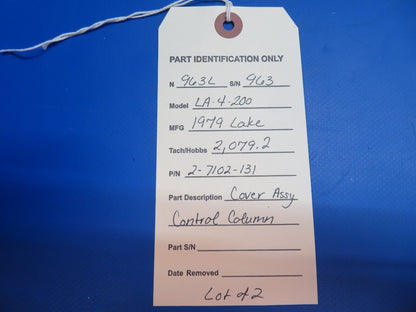 PART IDENTIFICATION ONLY
N 963L S/N 963
Model LA-4-200
MFG 1979 Lake
Tach/Hobbs 2,079.2
P/N 2-7102-131
Part Description Cover Assy
Control Column
Part S/N
Date Removed
Lot of 2